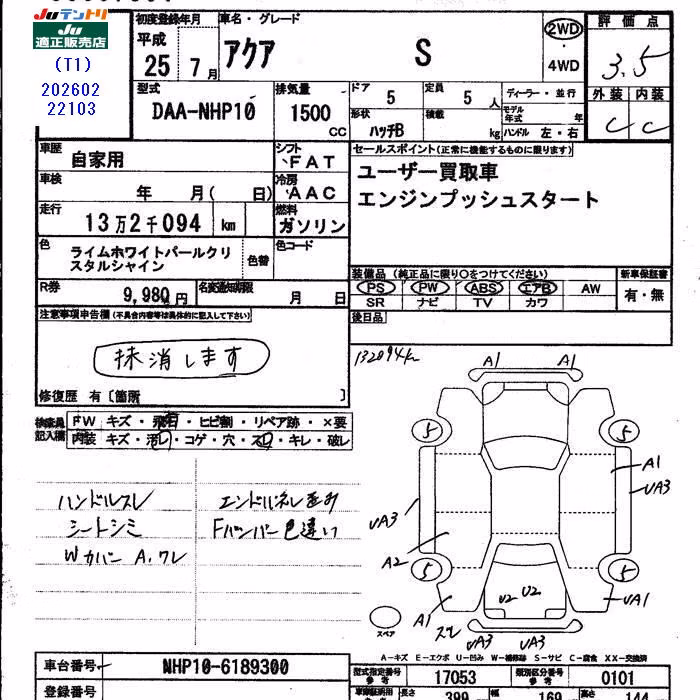 Juテントリ
Ju
適正販売店
(T1)
202602
22103
初度登録年月
平成
25年 7月
車名・グレード
アクア S
2WD
4WD
評価点
3.5
外装 内装
C C
型式
DAA-NHP10
排気量
1500
CC
ドア 5
定員 5人
形状 ハッチB
積載 kg
ディーラー・並行
モデル年式 年
ハンドル 左・右
車歴 自家用
シフト FAT
車検 年 月( 日)
冷房 AAC
走行 13万2千094 km
燃料 ガソリン
色 ライムホワイトパールクリスタルシャイン
色替
色コード
R券 9,980円
名変通知期限 月 日
セールスポイント(正常に機能するものに限ります)
ユーザー買取車
エンジンプッシュスタート
装備品 (純正品に限り○をつけてください)
新車保証書
PS PW ABS エアB AW
有・無
SR ナビ TV カワ
後日品
注意事項申告欄(不具合内容等は具体的に記入して下さい)
抹消します
修復歴 有〔箇所 〕
検査員記入欄
FW キズ・飛石・ヒビ割・リペア跡・×要
内装 キズ・汚レ・コゲ・穴・スレ・キレ・破レ
ハンドルスレ
シートシミ
Wカバー A.ワレ
Fバンパー色違い
132094km
A1 A1
5 5
A1
UA3
UA3
A2
5 5
U2 U2
A1
UA1
スレ
UA3 UA3
スペア
A－キズ E－エクボ U－凹み W－補修跡 S－サビ C－腐食 XX－交換済
車台番号 NHP10-6189300
登録番号
型式指定番号 参考 17053
類別区分番号 参考 0101
車庫証明用 参考 長さ 399 幅 169 高さ 144